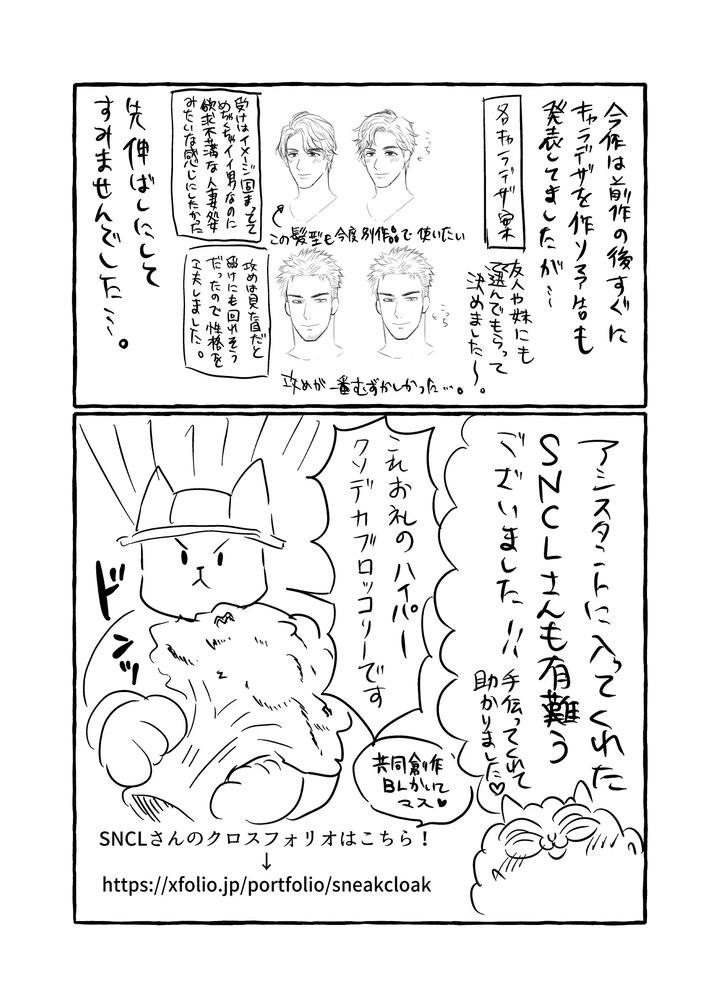 今作は前作の後すぐに
キャラデザを作り予告も
発表してましたが…
各キャラデザ案
友人や妹にも
選んでもらって
決めました〜。
この髪型も今度別作品で使いたい
受けはイメージ固まってて
めちゃくちゃイイ男なのに
欲求不満な人妻処女
みたいな感じにしたかった
攻めは見た目だと
受けにも回れそう
だったので性格を
工夫しました。
攻めが一番むずかしかった…。
先伸ばしにして
すみませんでした…。
アシスタントに入ってくれた
SNCLさんも有難う
ございました!!
手伝ってくれて
助かりました♡
これお礼のハイパー
クソデカブロッコリーです
共同創作
BLかいて
マス♥
ドンッ
SNCLさんのクロスフォリオはこちら！
↓
https://xfolio.jp/portfolio/sneakcloak